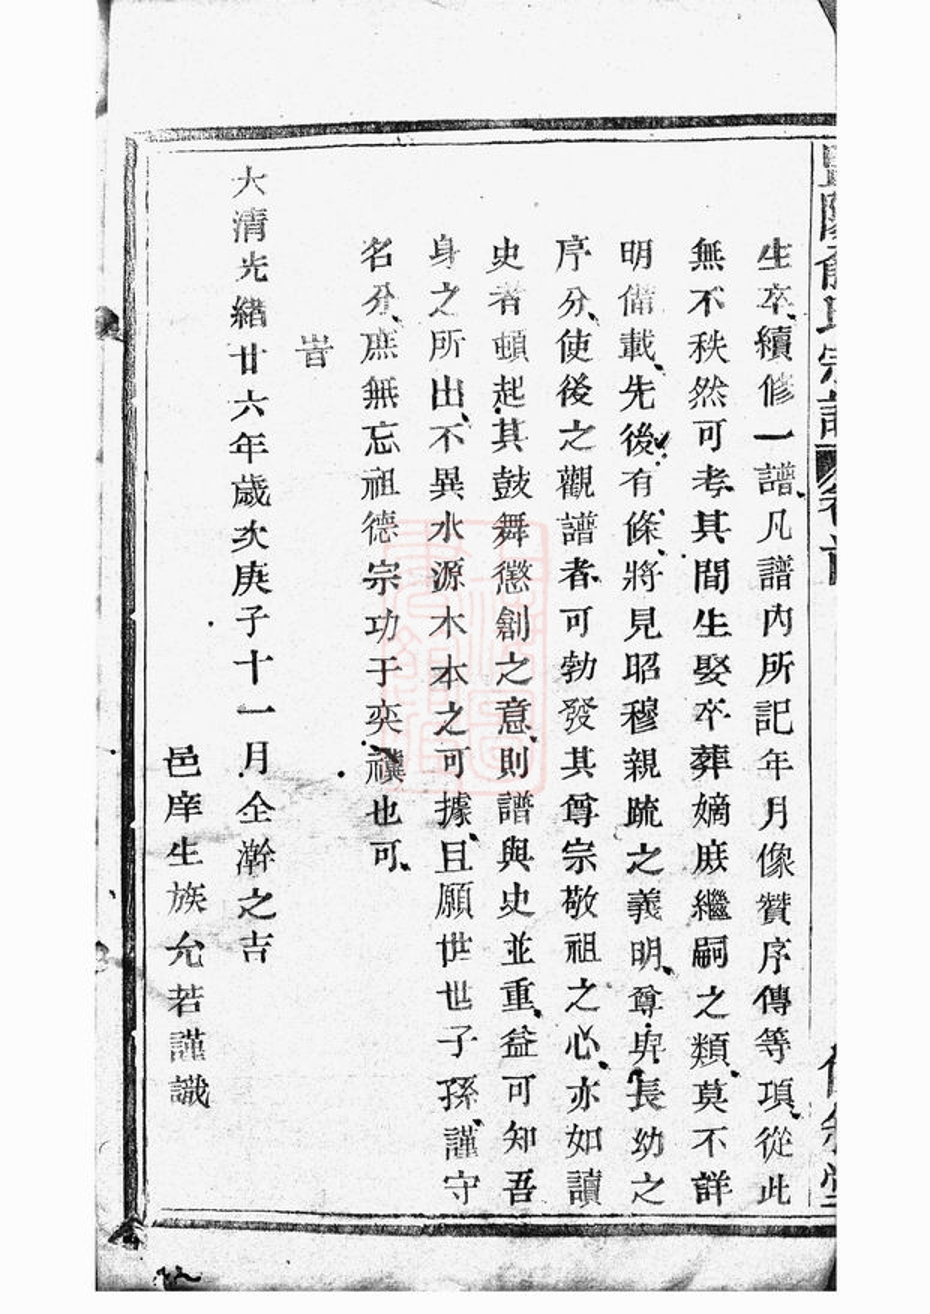 暨陽俞氏宗譜 卷首
生卒續修一譜凡譜內所記年月像贊序傳等項從此
無不秩然可考其間生娶卒葬嫡庻繼嗣之類莫不詳
明備載先後有條將見昭穆親疏之義明尊卑長幼之
序分使後之觀譜者可勃發其尊宗敬祖之心亦如讀
史者頓起其鼓舞懲創之意則譜與史並重益可知吾
身之所出不異水源木本之可據且願世世子孫謹守
名分庶無忘祖德宗功于奕禩也可
旹
大清光緒廿六年歲次庚子十一月仝澣之吉
邑庠生族允若謹識